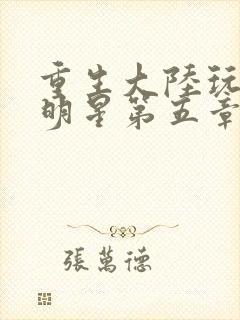 重生大陸玩
明星第五章
張萬德